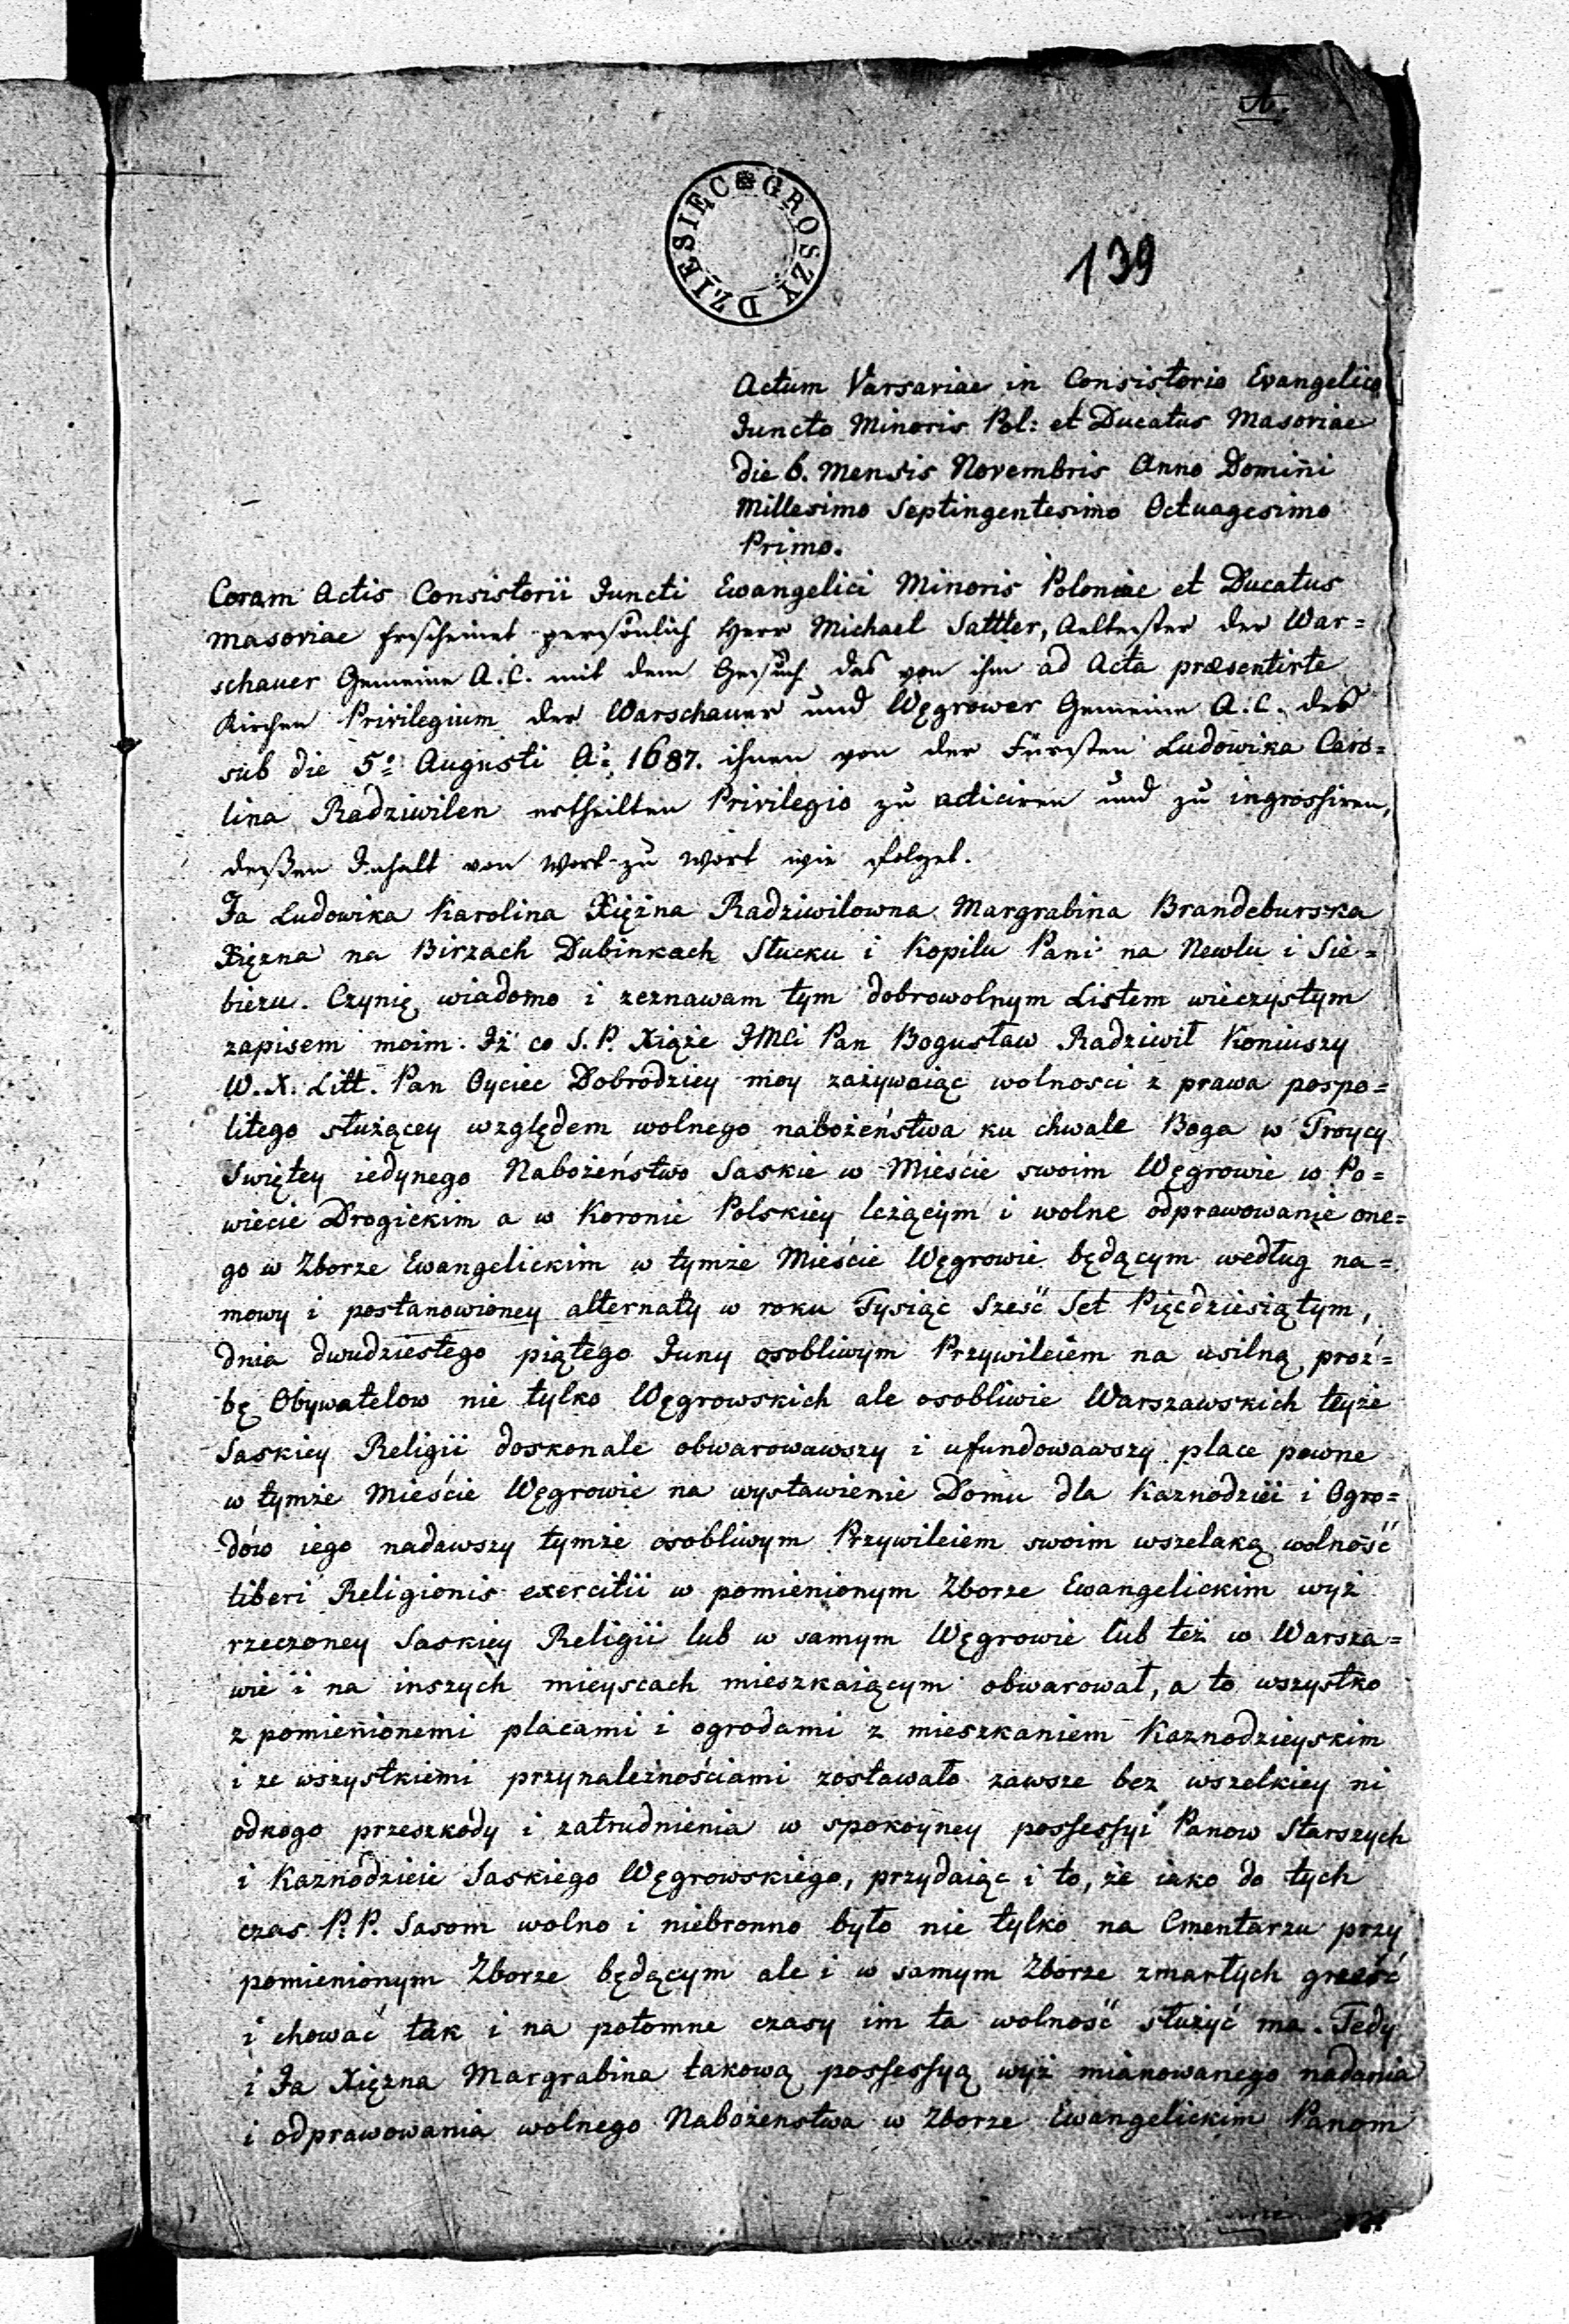 A.
DZIESIĘC GROSZY
139
Actum Varsaviae in Consistorio Evangelico
Juncto Minoris Pol: et Ducatus Masoviae
die 6. Mensis Novembris Anno Domini
Millesimo Septingentesimo Octuagesimo
Primo.
Coram Actis Consistorii Juncti Ewangelici Minoris Poloniae et Ducatus
Masoviae erscheinet persönlich Herr Michael Sattler, Aeltester der War=
schauer Gemeine A.C. mit dem Gesuch das von ihm ad Acta præsentirte
Kirchen Privilegium der Warschauer und Węgrower Gemeine A.C. des
sub die 5º Augusti Aº 1687. ihnen von der Fürsten Ludowika Caro=
lina Radziwilen ertheilten Privilegio zu acticiren und zu ingrossiren,
deßen Inhalt von Wort zu Wort wie folget.
Ja Ludowika Karolina Xiężna Radziwilowna Margrabina Brandeburska
Xiężna na Birzach Dubinkach Słucku i Kopilu Pani na Newlu i Sie=
bieżu. Czynię wiadomo i zeznawam tym dobrowolnym Listem wieczystym
zapisem moim. Iż co S.P. Xiąże JMCi Pan Bogusław Radziwił Koniuszy
W.X. Litt. Pan Oyciec Dobrodziey moy zażywaiąc wolnosci z prawa pospo=
litego służącey względem wolnego nabożeństwa ku chwale Boga w Troycy
Swiętey iedynego Nabożeństwo Saskie w Mieście swoim Węgrowie w Po=
wiecie Drogickim a w Koronie Polskiey leżącym i wolne odprawowanie one=
go w Zborze Ewangelickim w tymże Mieście Węgrowie będącym według na=
mowy i postanowioney alternaty w roku Tysiąc Sześć Set Pięcdziesiątym,
dnia dwudziestego piątego Juny osobliwym Przywileiem na usilną proź=
bę Obywatelow nie tylko Węgrowskich ale osobliwie Warszawskich teyże
Saskiey Religii doskonale obwarowawszy i ufundowawszy place pewne
w tymże Mieście Węgrowie na wystawienie Domu dla Kaznodziei i Ogro=
dów iego nadawszy tymże osobliwym Przywileiem swoim wszelaką wolność
liberi Religionis exercitii w pomienionym Zborze Ewangelickim wyż
rzeczoney Saskiey Religii lub w samym Węgrowie lub też w Warsza=
wie i na inszych mieyscach mieszkaiącym obwarował, a to wszystko
z pomienionemi placami i ogrodami z mieszkaniem Kaznodzieyskim
i ze wszystkiemi przynależnościami zostawało zawsze bez wszelkiey ni
odkogo przeszkody i zatrudnienia w spokoyney possessyi Panow Starszych
i Kaznodzieie Saskiego Węgrowskiego, przydaiąc i to, że iako do tych
czas P.P. Sasom wolno i niebronno było nie tylko na Cmentarzu przy
pomienionym Zborze będącym ale i w samym Zborze zmarłych grześć
i chować tak i na potomne czasy im ta wolność służyć ma. Tedy
i Ja Xiężna Margrabina takową possessyą wyż mianowanego nadania
i odprawowania wolnego Nabożenstwa w Zborze Ewangelickim Panom